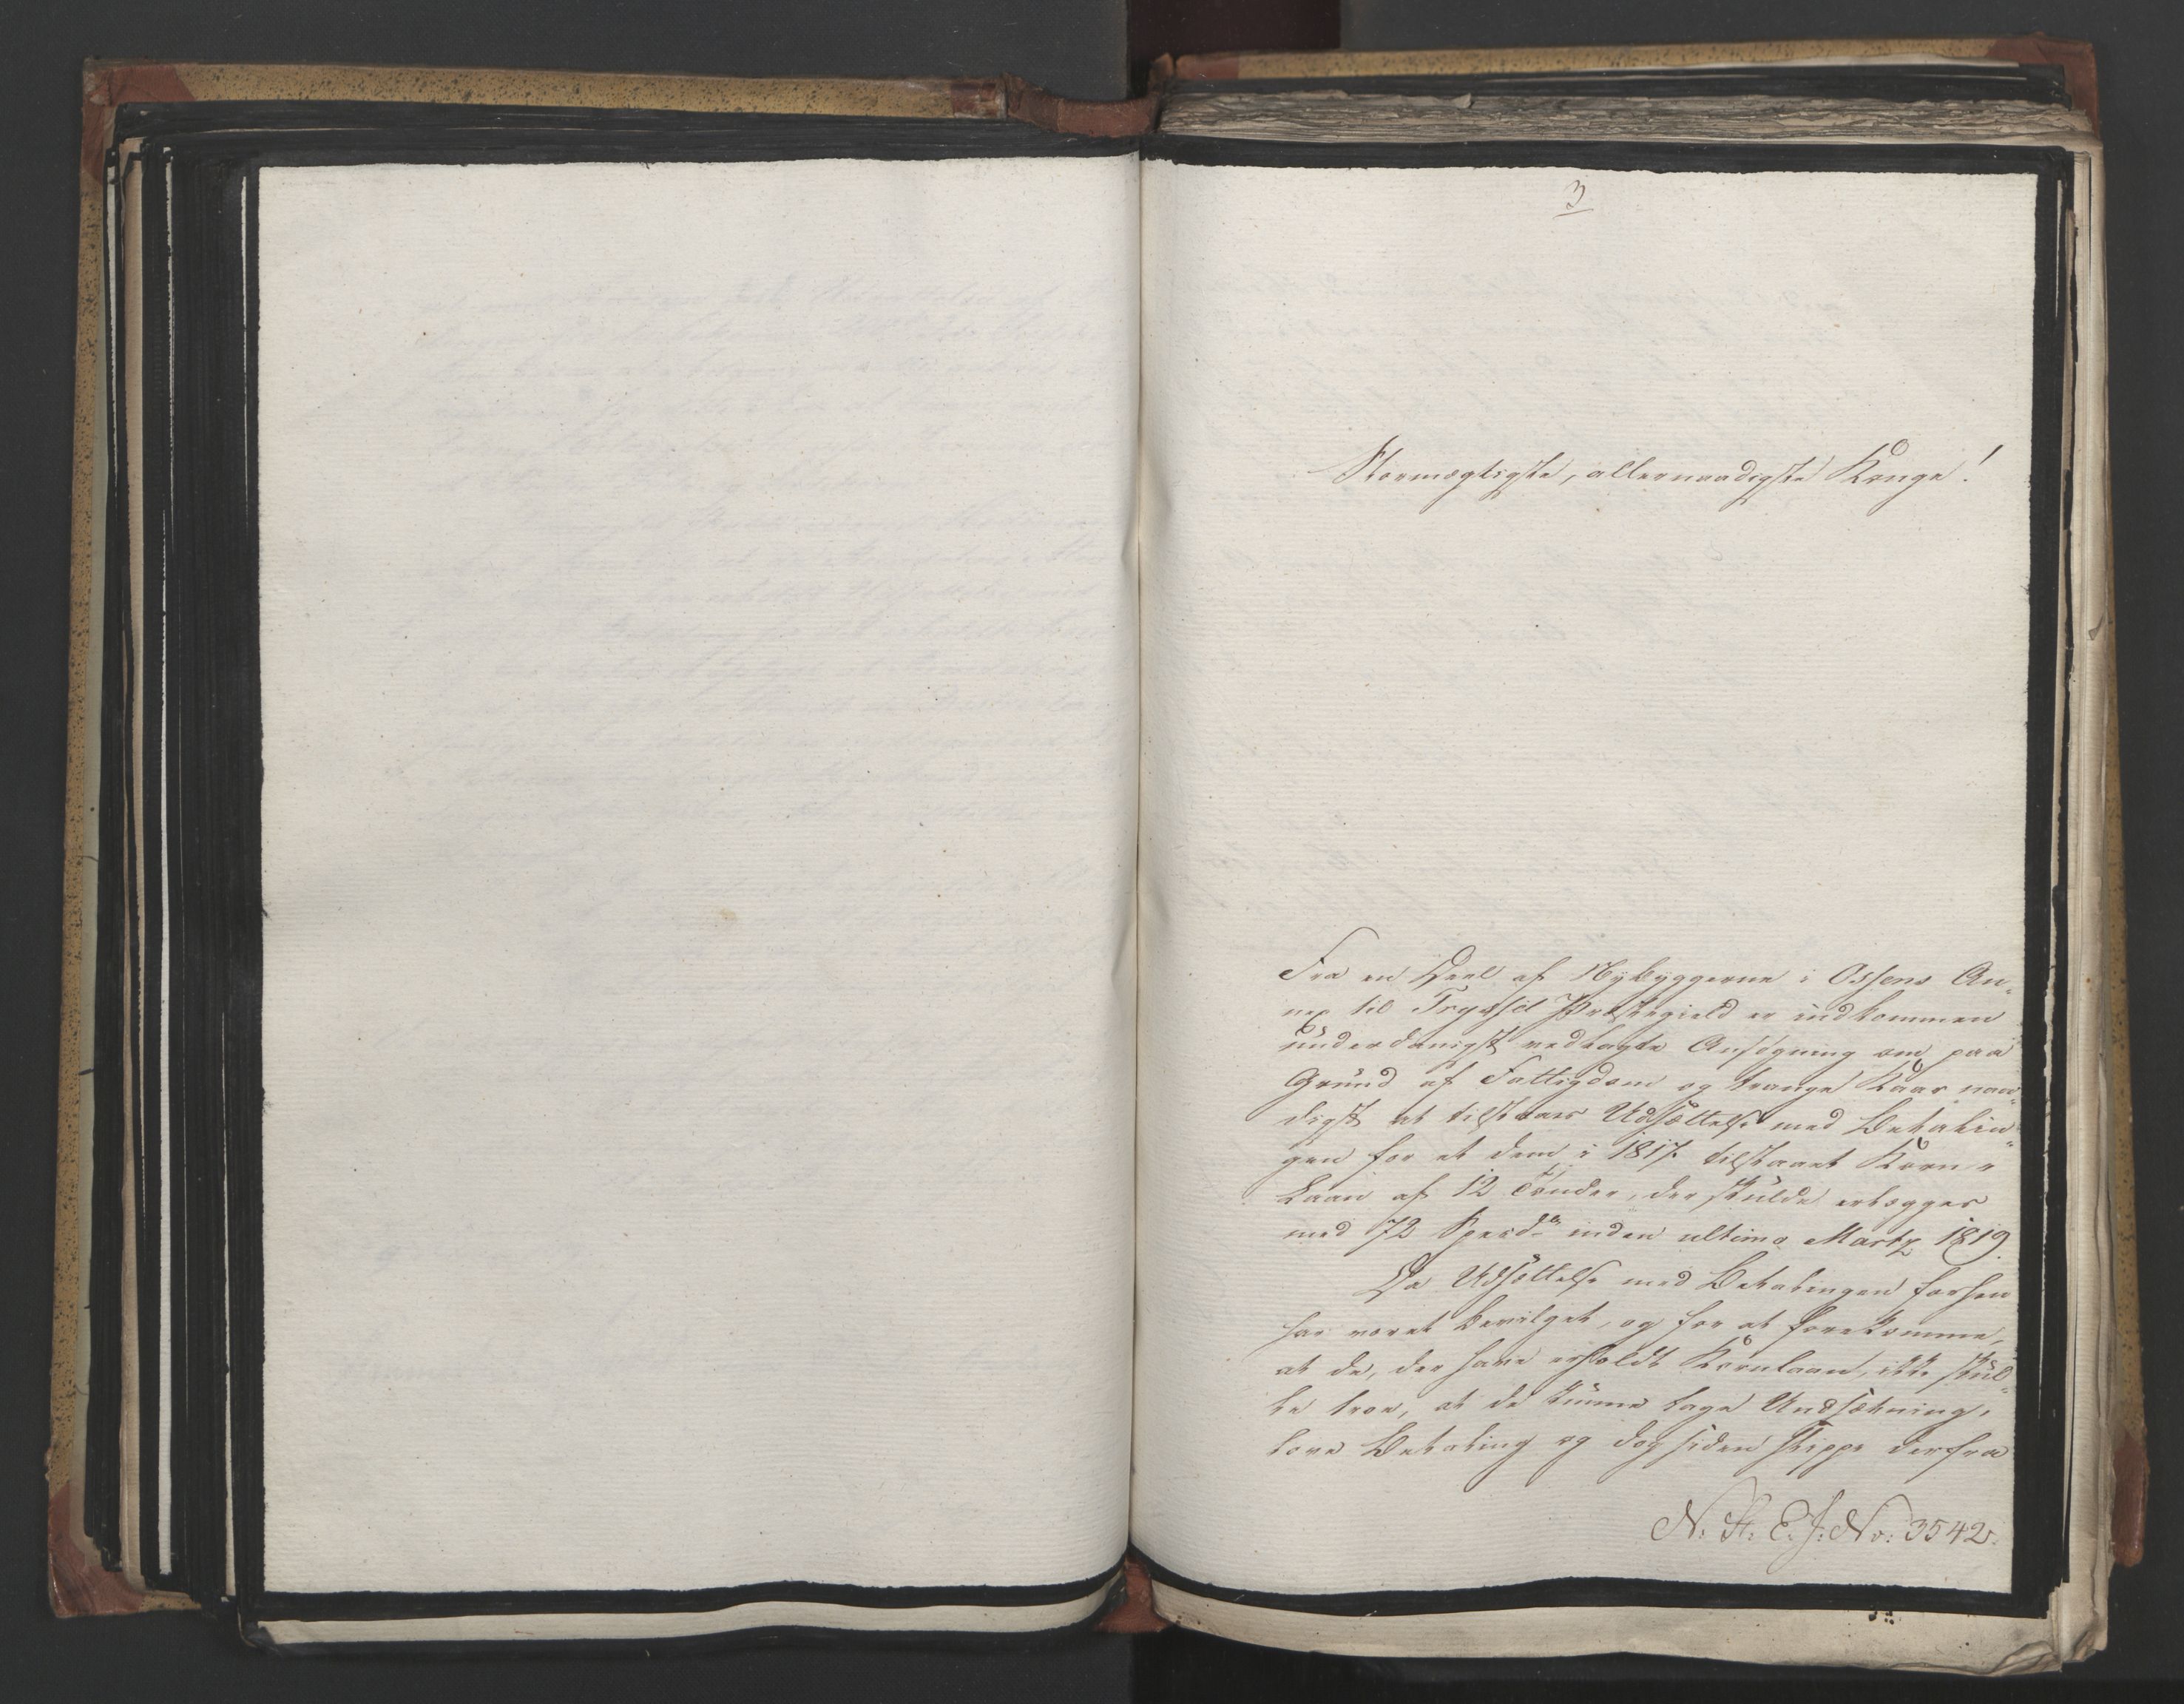 3
Stormægtigste, allernaadigste Konge!
Fra en Deel af Nybyggerne i Ossens An„
nex til Tryssil Præstegield er indkommen
underdanigst vedlagte Ansøgning om paa
Grund af Fattigdom og trange Kaar naa„
digst at tilstaaes Udsættelse med Betalin„
gen for et dem i 1817 tilstaaet Korn„
Laan af 12 Tønder, der skulde erlægges
med 72 Spesdr inden ultimo Martz 1819.
Da Udsættelse med Betalingen forhen
har været bevilget, og for at forekomme,
at de, der have erholdt Kornlaan, ikke skul„
le troe, at de kunne tage Undsætning,
love Betaling og dog siden slippe derfra
N. St. E. J: No: 3542.